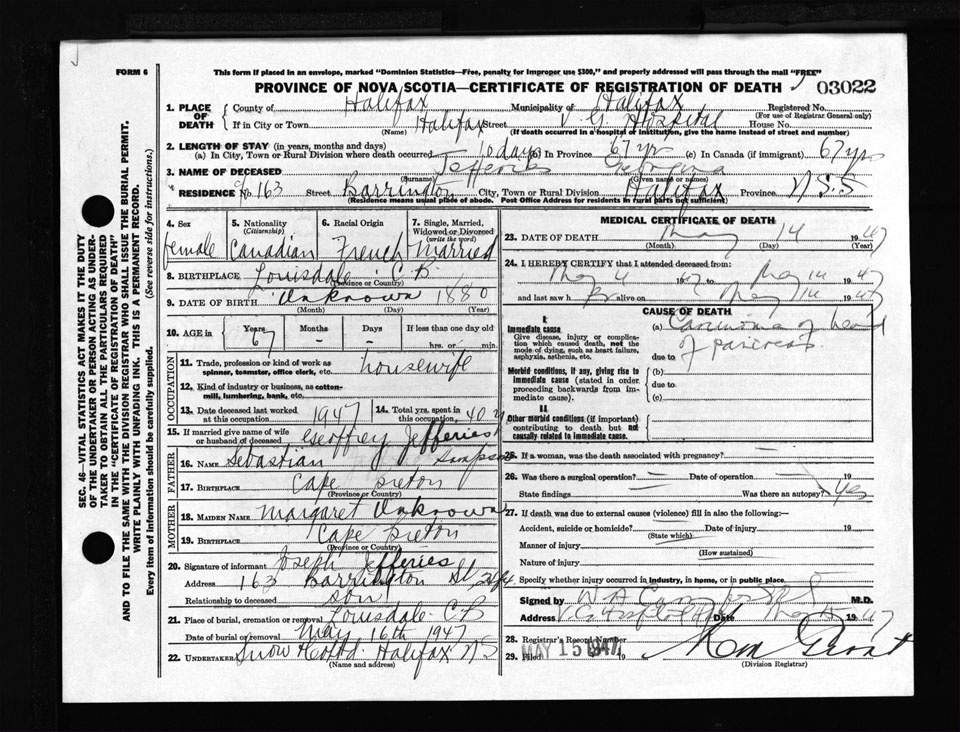 FORM 6
This form if placed in an envelope, marked "Dominion Statistics—Free, penalty for improper use $300," and properly addressed will pass through the mail "FREE"
PROVINCE OF NOVA SCOTIA—CERTIFICATE OF REGISTRATION OF DEATH 03022
1. PLACE OF DEATH County of Halifax Municipality of Halifax Registered No.
(For use of Registrar General only)
If in City or Town Halifax Street V. G. Hospital House No.
(Name) (If death occurred in a hospital or institution, give the name instead of street and number)
2. LENGTH OF STAY (in years, months and days)
(a) In City, Town or Rural Division where death occurred 10 days (b) In Province 67 yrs (c) In Canada (if immigrant) 67 yrs
3. NAME OF DECEASED Jefferies Georgina
(Surname) (Given name or names)
RESIDENCE No. 163 Street Barrington City, Town or Rural Division Halifax Province N.S.
(Residence means usual place of abode. Post Office Address for residents in rural parts not sufficient)
4. Sex
female
5. Nationality
(Citizenship)
Canadian
6. Racial Origin
French
7. Single, Married, Widowed or Divorced
(write the word)
Married
8. BIRTHPLACE Louisdale C.B.
(Province or Country)
9. DATE OF BIRTH Unknown 1880
(Month) (Day) (Year)
10. AGE in Years Months Days If less than one day old
67 – – hrs. or min.
OCCUPATION
11. Trade, profession or kind of work as spinner, teamster, office clerk, etc. housewife
12. Kind of industry or business, as cotton-mill, lumbering, bank, etc.
13. Date deceased last worked at this occupation 1947
14. Total yrs. spent in this occupation 40 yrs
15. If married give name of wife or husband of deceased Geoffrey Jefferies
FATHER
16. NAME Sebastian Sampson
17. BIRTHPLACE Cape Breton
(Province or Country)
MOTHER
18. MAIDEN NAME Margaret Unknown
19. BIRTHPLACE Cape Breton
(Province or Country)
20. Signature of informant Joseph Jefferies
Address 163 Barrington St
Relationship to deceased son
21. Place of burial, cremation or removal Louisdale C.B
Date of burial or removal May 16th 1947
22. UNDERTAKER Snow &Co Ltd. Halifax NS
(Name and address)
MEDICAL CERTIFICATE OF DEATH
23. DATE OF DEATH May 14 1947
(Month) (Day) (Year)
24. I HEREBY CERTIFY that I attended deceased from:
May 4 1947 to May 14 1947
and last saw her alive on May 14 1947
CAUSE OF DEATH
I.
Immediate cause
Give disease, injury or complication which caused death, not the mode of dying, such as heart failure, asphyxia, asthenia, etc.
(a) Carcinoma of head of pancreas
due to
Morbid conditions, if any, giving rise to immediate cause (stated in order proceeding backwards from immediate cause).
(b)
due to
(c)
II.
Other morbid conditions (if important) contributing to death but not causally related to immediate cause.
25. If a woman, was the death associated with pregnancy?
26. Was there a surgical operation? Date of operation 19
State findings Was there an autopsy? Yes
27. If death was due to external causes (violence) fill in also the following:—
Accident, suicide or homicide? Date of injury 19
(State which)
Manner of injury
(How sustained)
Nature of injury
Specify whether injury occurred in industry, in home, or in public place.
Signed by M.D.
Address Date 1947
28. Registrar's Record Number
29. Filed MAY 15 1947 19
(Division Registrar)
SEC. 46—VITAL STATISTICS ACT MAKES IT THE DUTY
OF THE UNDERTAKER OR PERSON ACTING AS UNDERTAKER TO OBTAIN ALL THE PARTICULARS REQUIRED
IN THE "CERTIFICATE OF REGISTRATION OF DEATH"
AND TO FILE THE SAME WITH THE DIVISION REGISTRAR WHO SHALL ISSUE THE BURIAL PERMIT.
WRITE PLAINLY WITH UNFADING INK. THIS IS A PERMANENT RECORD.
Every item of information should be carefully supplied. (See reverse side for instructions.)